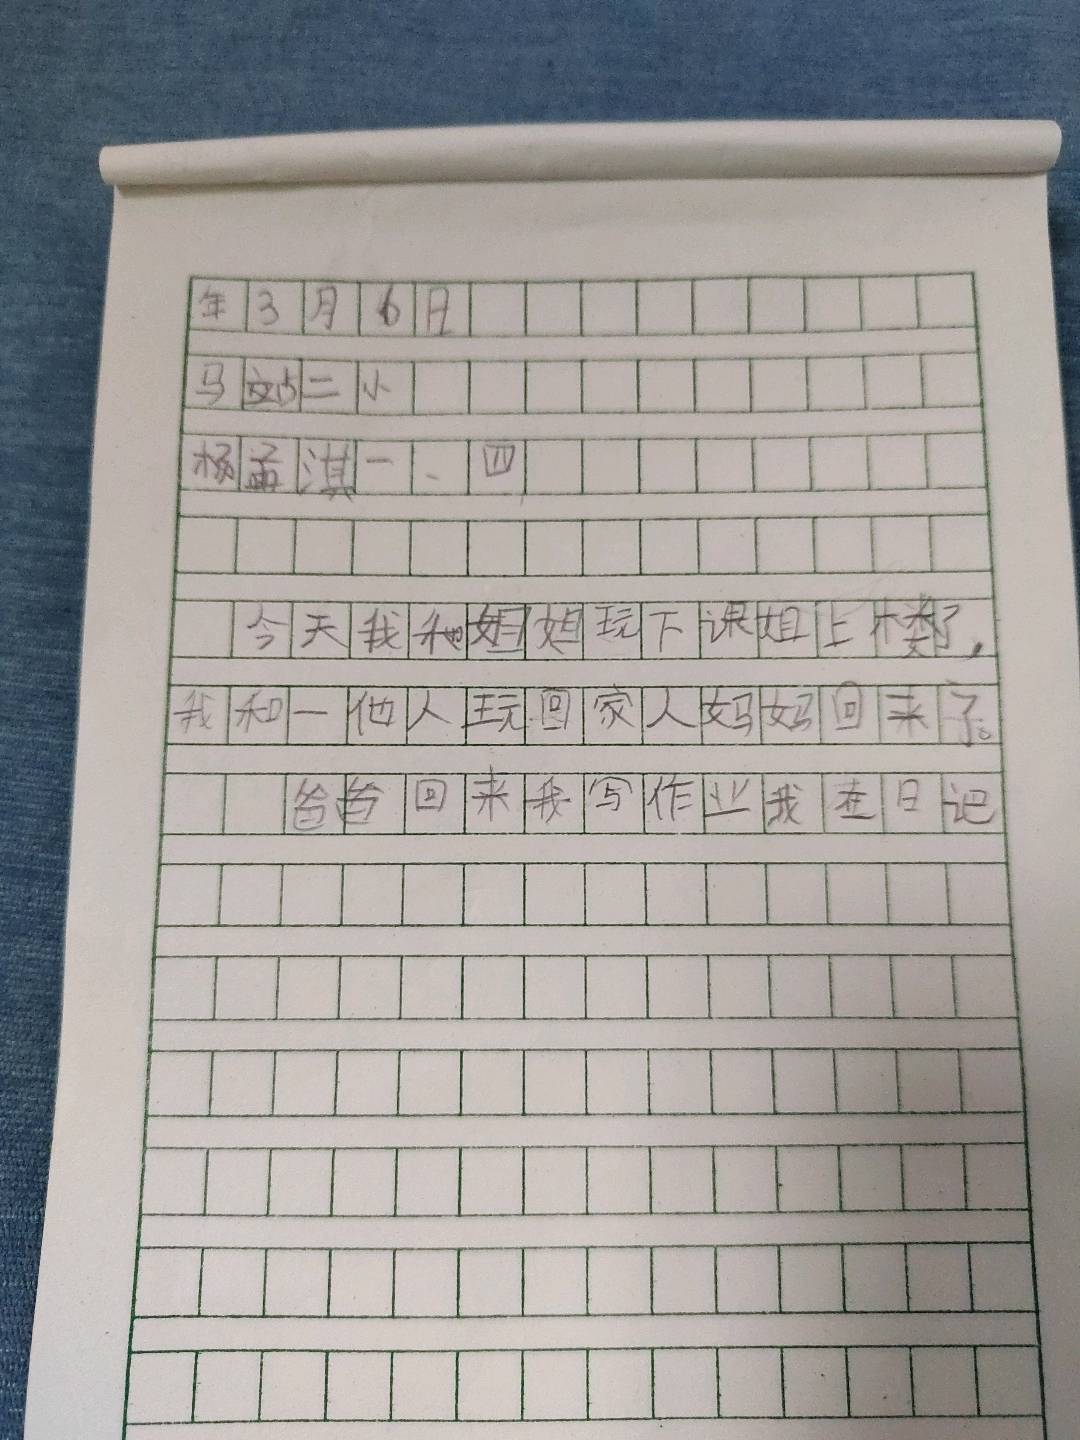 年3月6日
马站二小
杨孟淇一、四
今天我和姐姐玩下课姐上楼了,
我和一他人玩回家人妈妈回来了。
爸爸回来我写作业我在日记